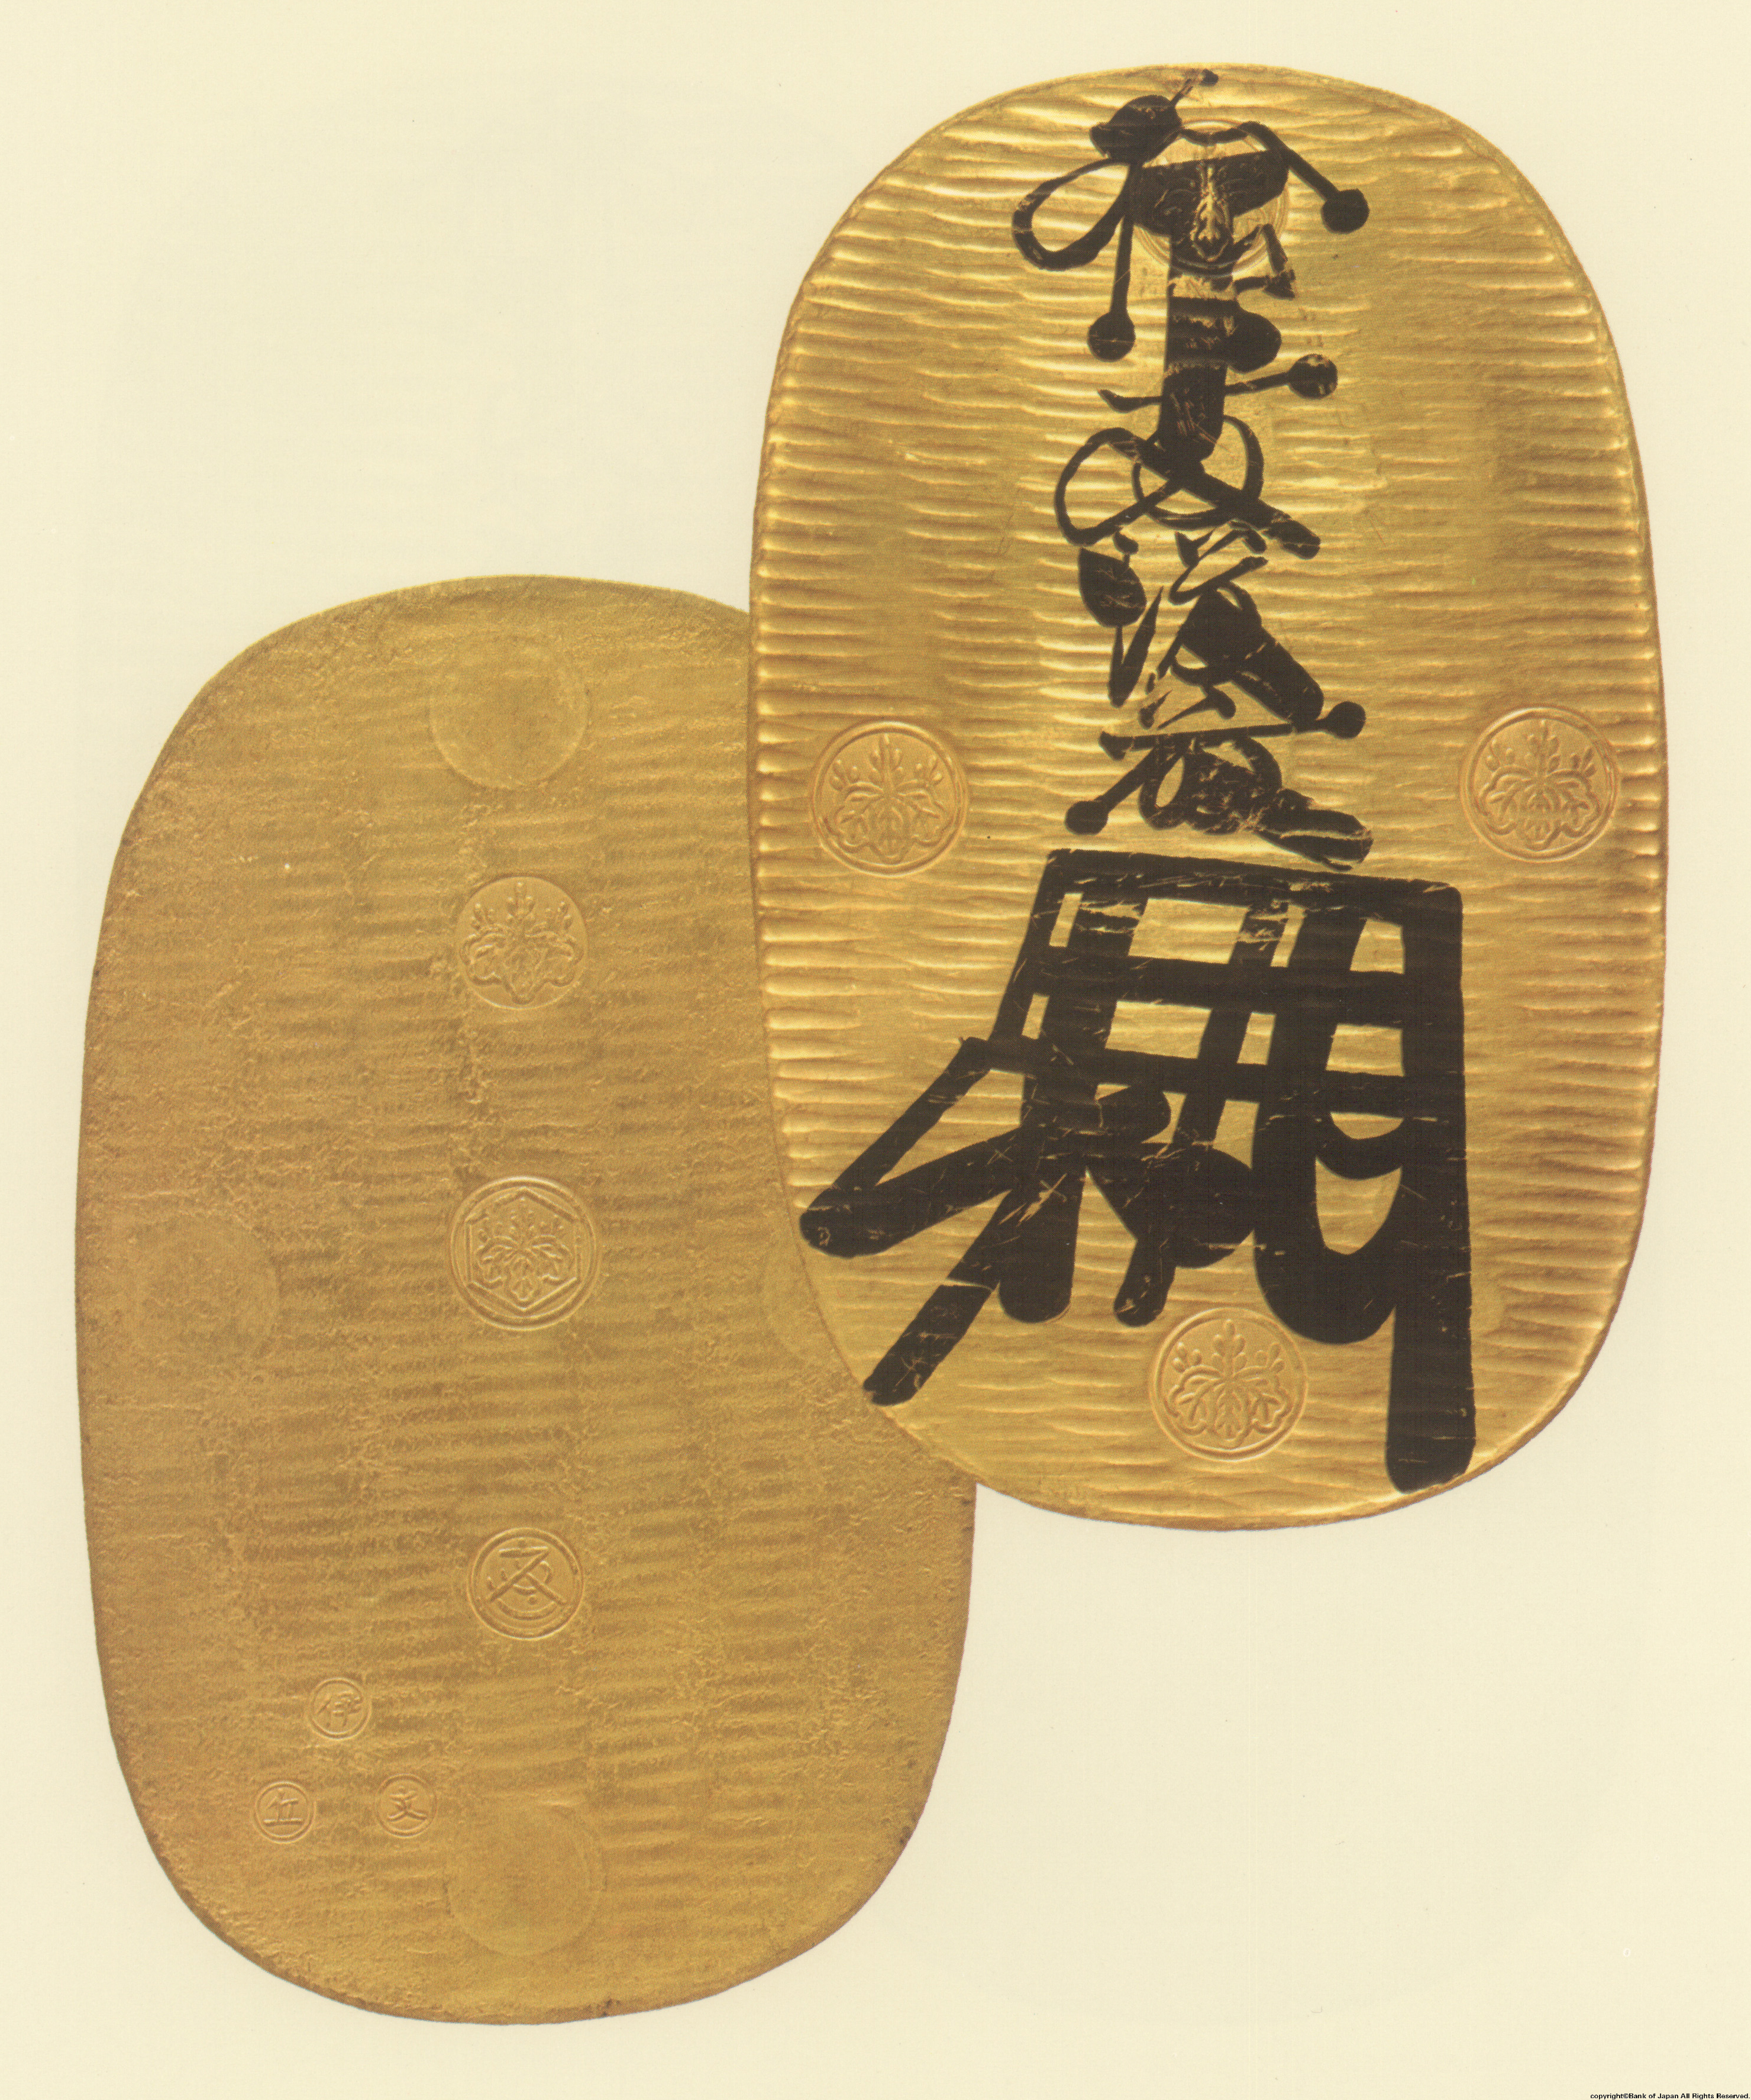 拾両後藤
伊
copyright©Bank of Japan All Rights Reserved.